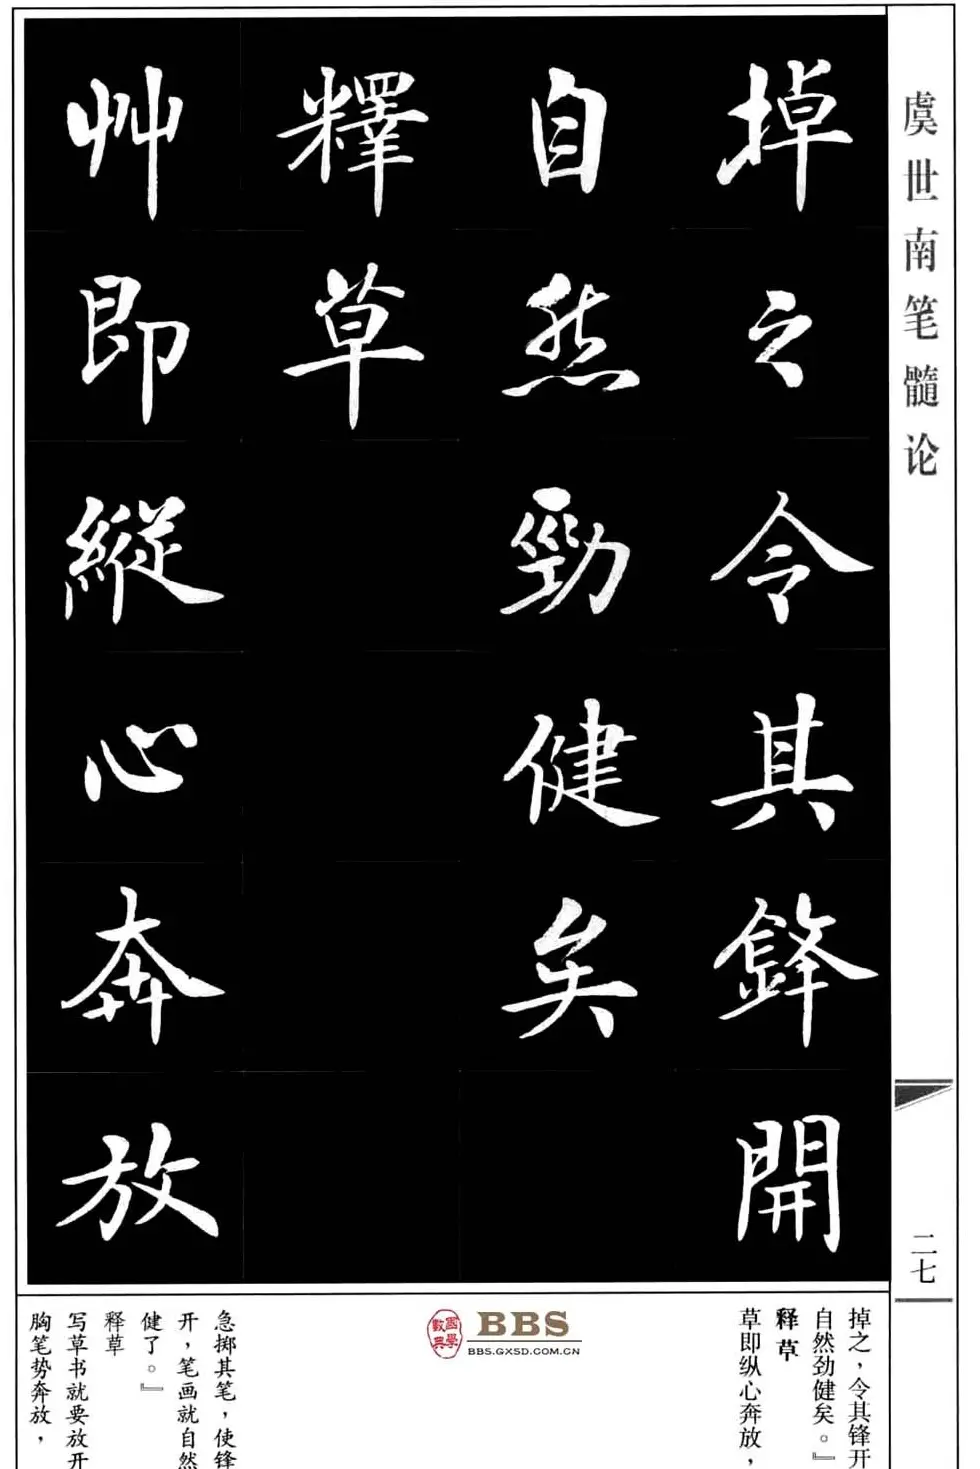 虞世南笔髓论
二七
掉之令其鋒開
自然勁健矣
釋草
艸即縦心奔放
掉之，令其锋开
自然劲健矣。』
释草
草即纵心奔放，
國學數典
BBS
BBS.GXSD.COM.CN
急掷其笔，使锋
开，笔画就自然
健了。』
释草
写草书就要放开
胸笔势奔放，